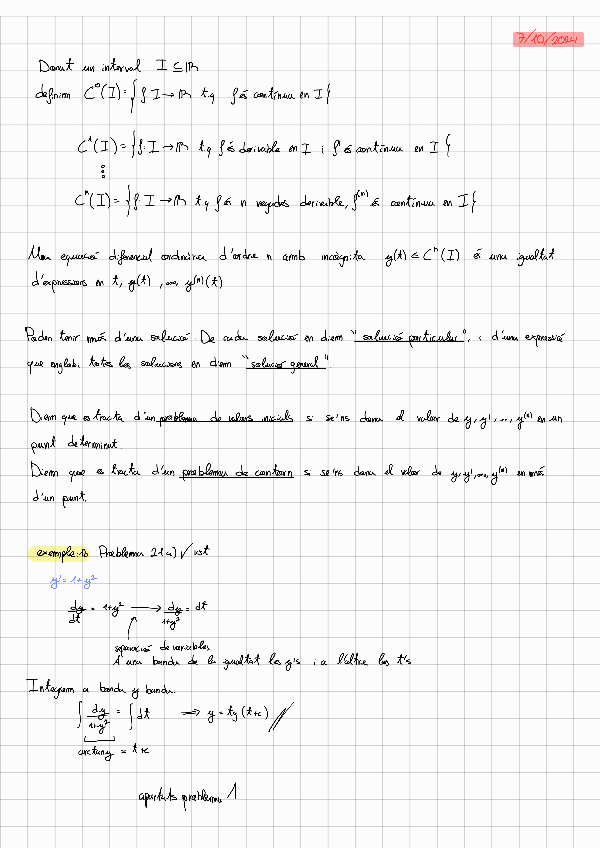 7/10/2024
Donat un interval I ⊆ ℝ
definim C⁰(I) = { f: I → ℝ t.q f és contínua en I }
C¹(I) = { f: I → ℝ t.q f és derivable en I i f és contínua en I }
⋮
Cⁿ(I) = { f: I → ℝ t.q f és n vegades derivable, f⁽ⁿ⁾ és contínua en I }
Una equació diferencial ordinària d'ordre n amb incògnita y(t) ∈ Cⁿ(I) és una igualtat
d'expressions en t, y(t), ..., y⁽ⁿ⁾(t)
Poden tenir més d'una solució. De cada solució en diem "solució particular", i d'una expressió
que englobi totes les solucions en diem "solució general".
Diem que es tracta d'un problema de valors inicials si se'ns dona el valor de y, y', ..., y⁽ⁿ⁾ en un
punt determinat.
Diem que es tracta d'un problema de contorn si se'ns dona el valor de y, y', ..., y⁽ⁿ⁾ en més
d'un punt.
exemple: Problema 21a) ✓
y' = 1+y²
dy/dt = 1+y² → dy/1+y² = dt
separació de variables
A una banda de la igualtat les y's i a l'altre les t's
Integrem a banda y banda
∫ dy/1+y² = ∫ dt ⇒ y = tg (t+c)
arctany = t+c
apartats problema 1